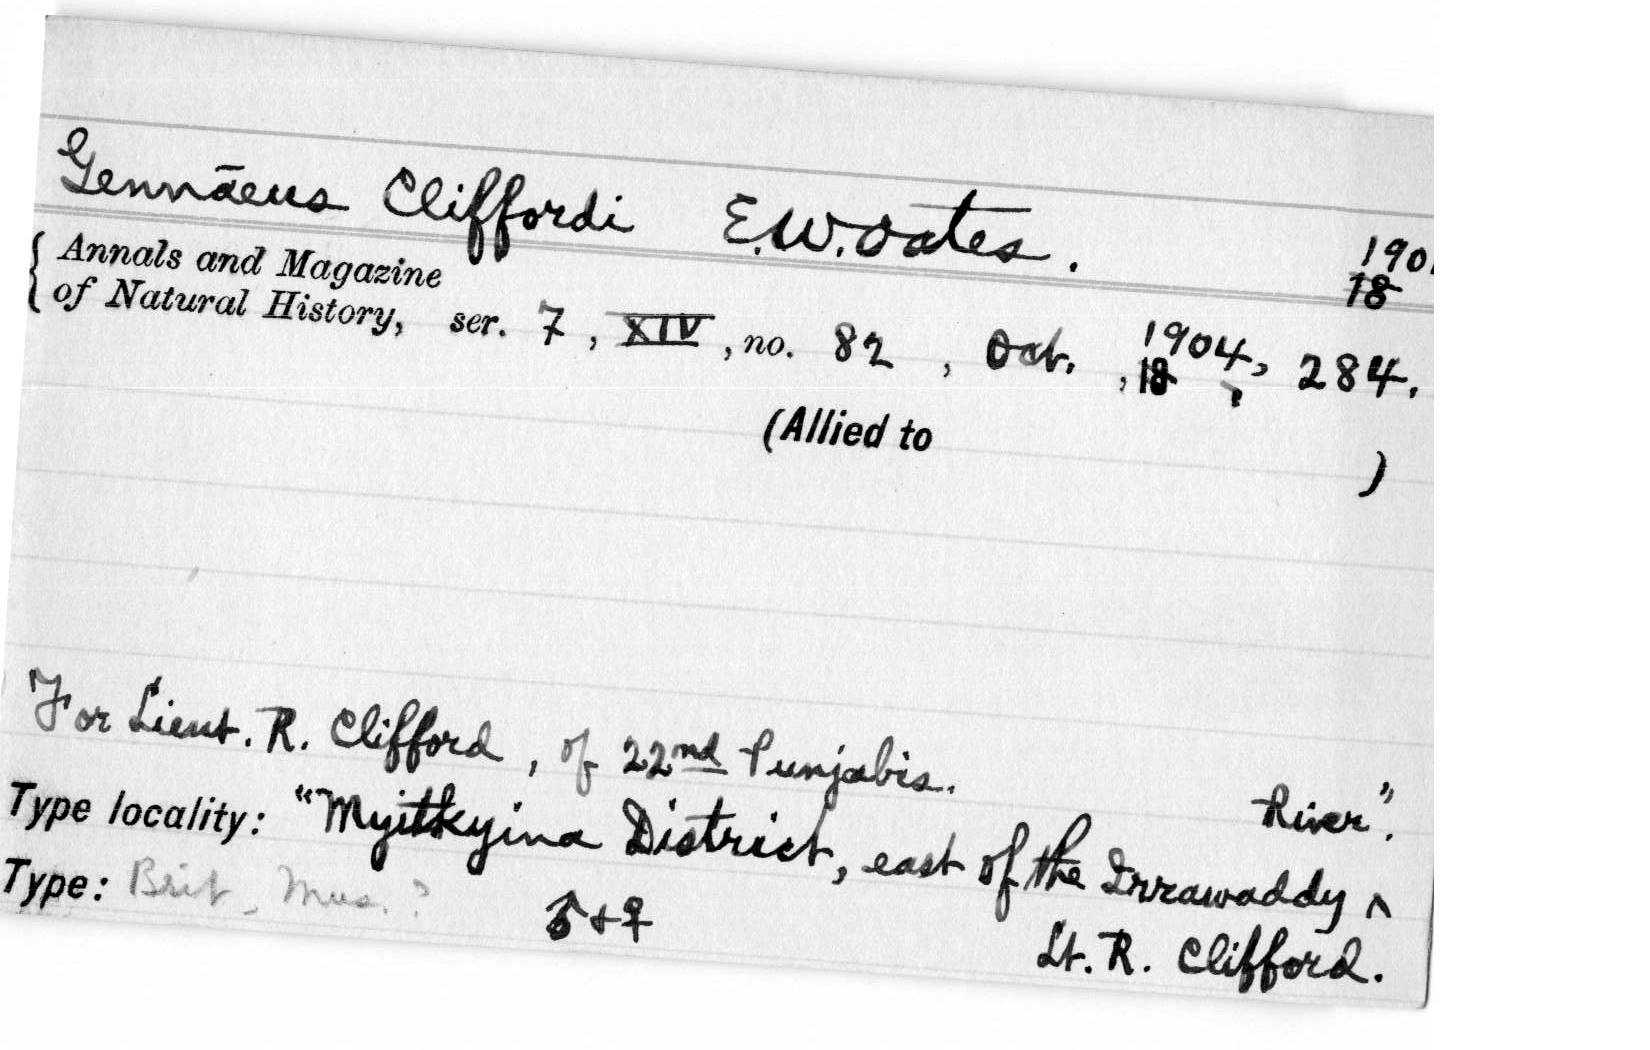 Gennāeus Cliffordi E.W. Oates.
190
18
Annals and Magazine
of Natural History, ser. 7, XIV, no. 82, Oct. 1904, 284.
, 18 ,
(Allied to )
For Lieut. R. Clifford, of 22nd Punjabis.
Type locality: "Myitkyina District, east of the Irrawaddy ^ River".
Type: Brit. Mus. ? ♂ + ♀ Lt. R. Clifford.